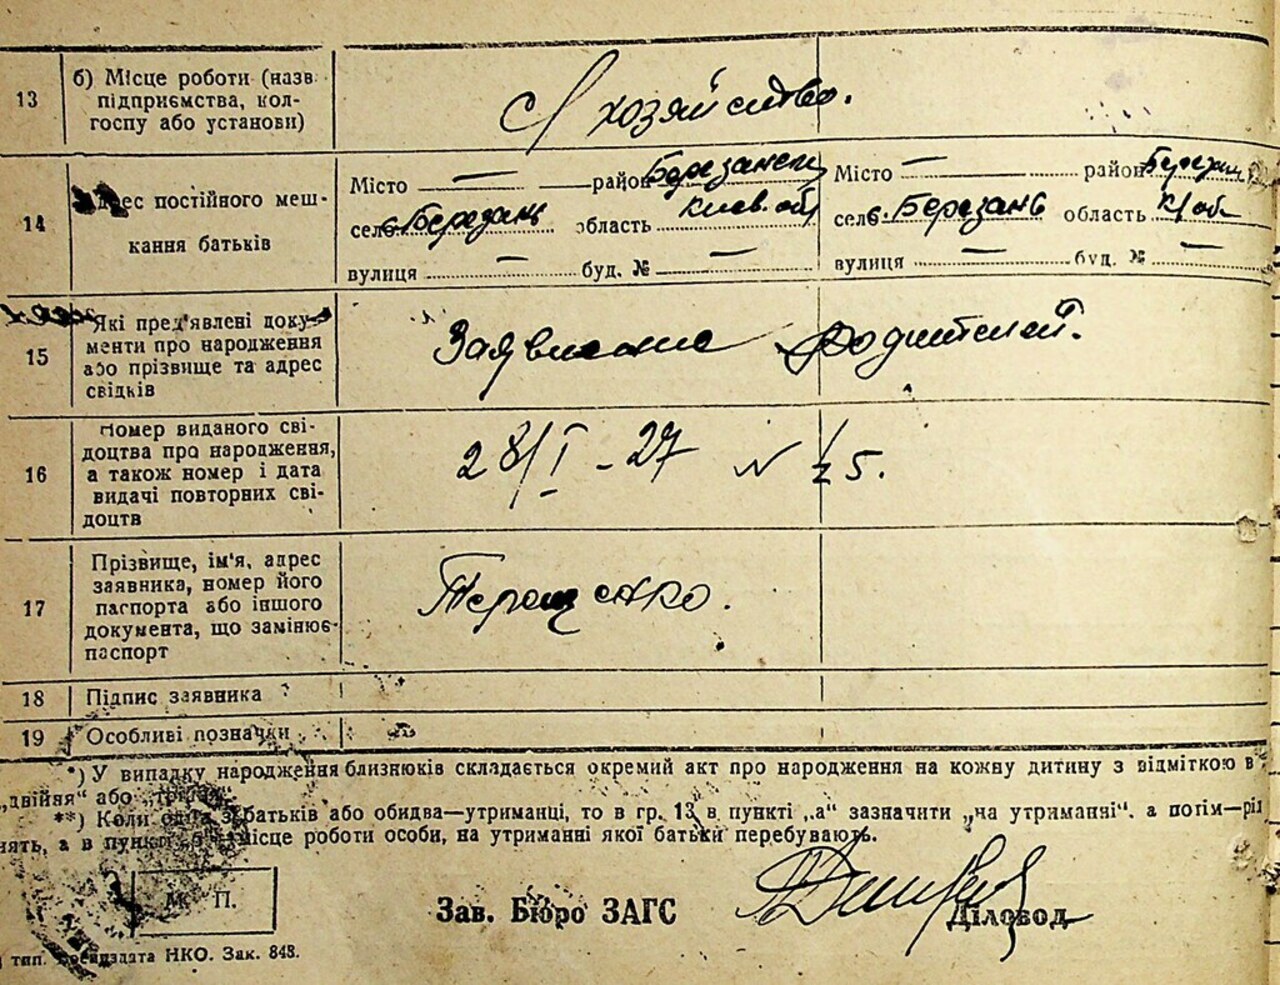 13 б) Місце роботи (назв.
підприємства, кол-
госпу або установи)
С/хозяйство.
14 Адрес постійного меш-
кання батьків
Місто — район Березанск
село с. Березань область Киев. обл
вулиця — буд. № —
Місто — район
село с. Березань область К/об
вулиця — буд. № —
15 Які пред'явлені доку-
менти про народження
або прізвище та адрес
свідків
Заявление родителей.
16 Номер виданого сві-
доцтва про народження,
а також номер і дата
видачі повторних сві-
доцтв
28/I - 27 N 25.
17 Прізвище, ім'я, адрес
заявника, номер його
паспорта або іншого
документа, що замінює
паспорт
Терещенко.
18 Підпис заявника
19 Особливі позначки
*) У випадку народження близнюків складається окремий акт про народження на кожну дитину з відміткою в
„двійня“ або „трійня“.
**) Коли один з батьків або обидва—утриманці, то в гр. 13 в пункті „а“ зазначити „на утриманні“. а потім—рід
нять, а в пункті „б“ місце роботи особи, на утриманні якої батьки перебувають.
М. П.
Зав. Бюро ЗАГС
Діловод
тип. НКО. Зак. 848.